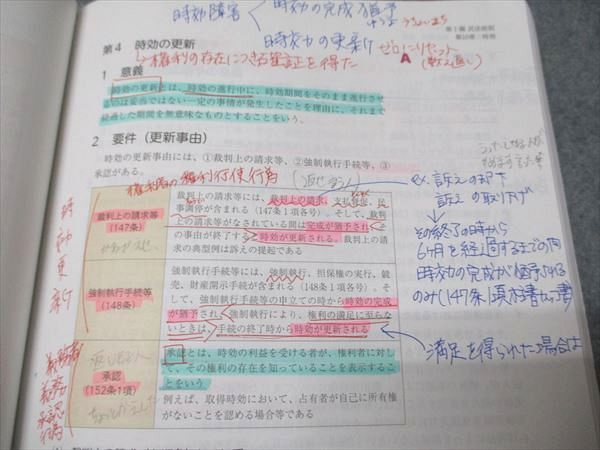 時効障害
時効の完成猶予
第1編 民法総則
時効の更新 ゼロにリセット
第4 時効の更新
権利の存在につき確証を得た
A
1 意義
時効の更新とは、時効の進行中に、時効期間をそのまま進行させ
るのは妥当ではない一定の事情が発生したことを理由に、それまで
経過した期間を無意味なものとすることをいう。
2 要件（更新事由）
時効の更新事由には、①裁判上の請求等、②強制執行手続等、③
承認がある。
権利者の権利行使行為
時効更新
裁判上の請求等
（147条）
裁判上の請求等には、裁判上の請求、支払督促、民
事調停が含まれる（147条1項各号）。そして、裁判
上の請求等がなされている間は完成が猶予され、そ
の事由が終了すると時効が更新される。裁判上の請
求の典型例は訴えの提起である
ex. 訴えの却下
訴えの取り下げ
その終了の時から
6ヶ月を経過するまでの間
時効の完成が猶予される
のみ（147条1項本書カッコ書
強制執行手続等
（148条）
強制執行手続等には、強制執行、担保権の実行、競
売、財産開示手続が含まれる（148条1項各号）。そ
して、強制執行手続等の申立ての時から時効の完成
が猶予され、強制執行により、権利の満足に至らな
いときは、手続の終了時から時効が更新される
満足を得られた場合は
義務者
義務
承認
行為
承認
（152条1項）
承認とは、時効の利益を受ける者が、権利者に対し
て、その権利の存在を知っていることを表示するこ
とをいう
例えば、取得時効において、占有者が自己に所有権
がないことを認める場合等である